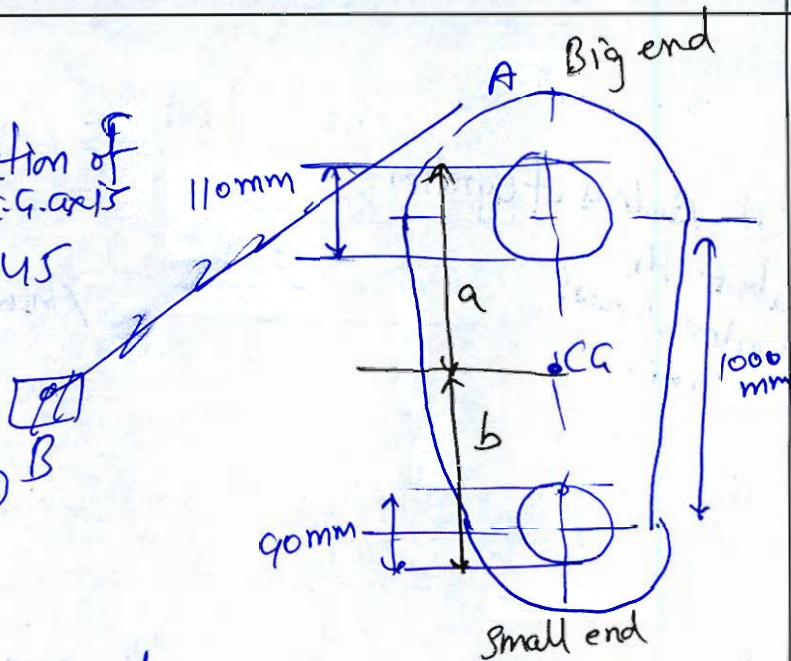 Big end
A
tion of
C.G. axis
110mm
us
a
CG
1000
mm
B
b
90mm
Small end